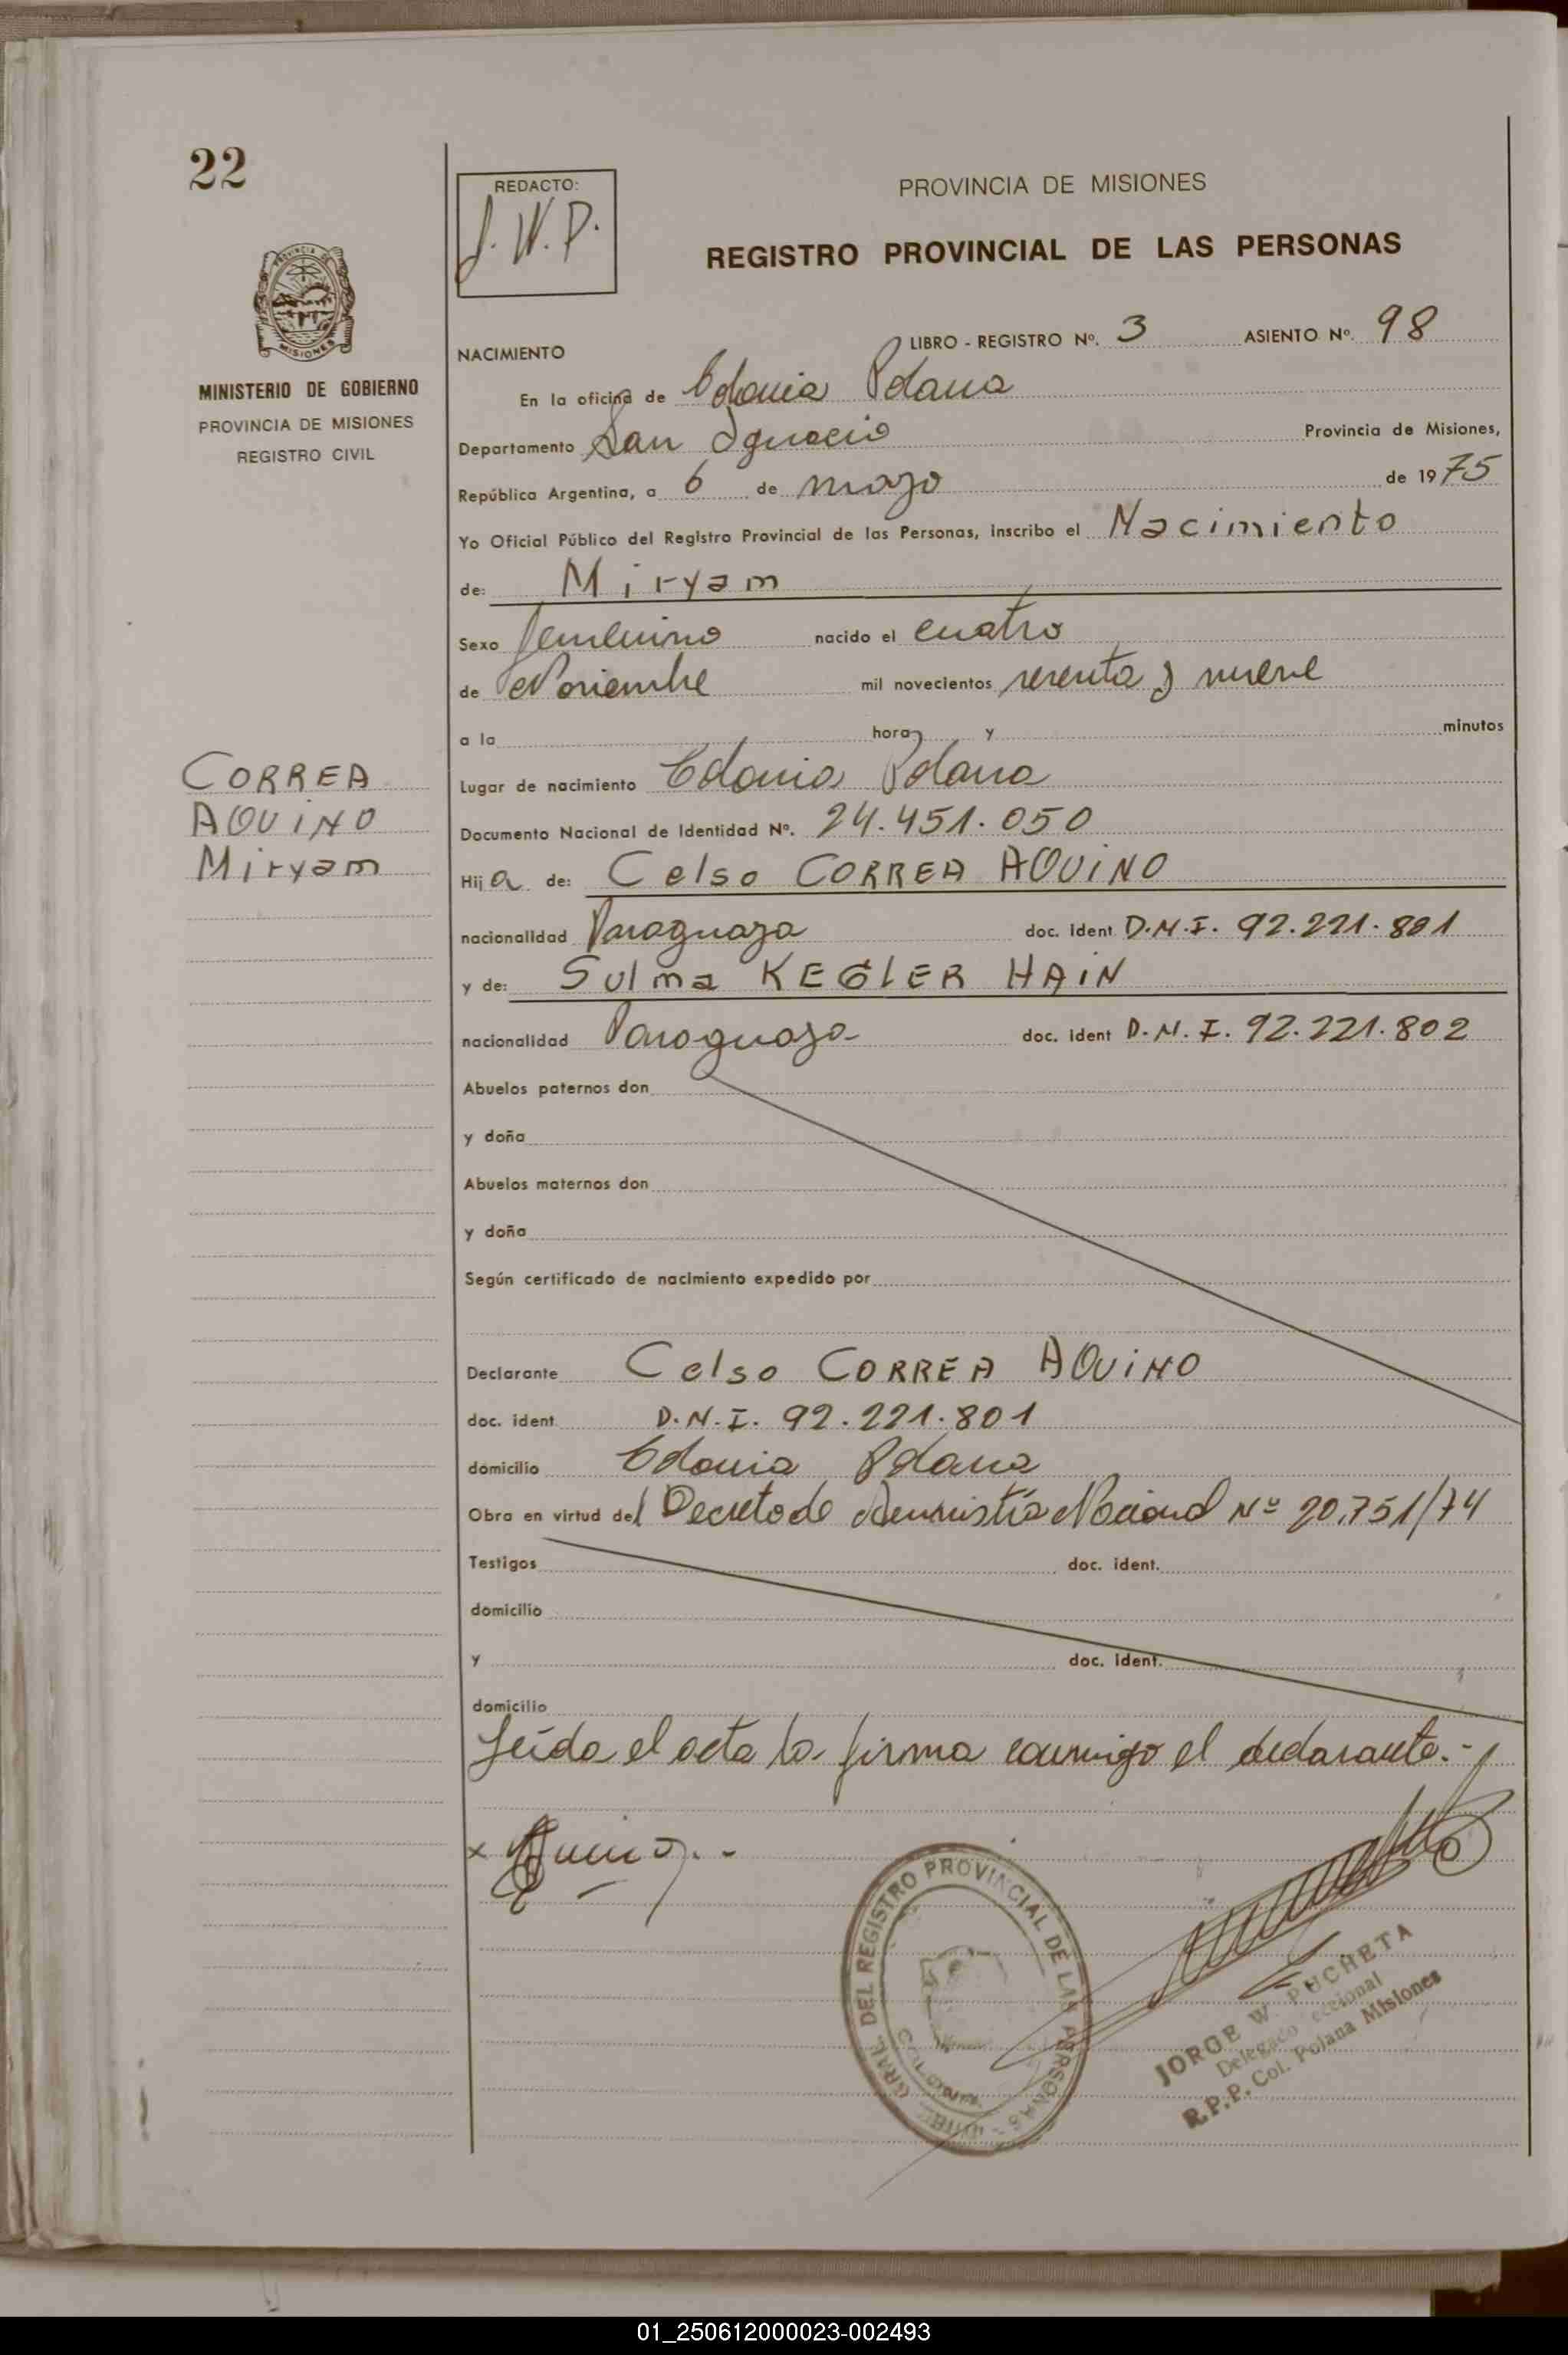 22
REDACTO:
J.W.P.
PROVINCIA DE MISIONES
REGISTRO PROVINCIAL DE LAS PERSONAS
PROVINCIA DE
MISIONES
MINISTERIO DE GOBIERNO
PROVINCIA DE MISIONES
REGISTRO CIVIL
LIBRO - REGISTRO Nº. 3 ASIENTO Nº. 98
NACIMIENTO
En la oficina de Colonia Polana
Departamento San Ignacio Provincia de Misiones,
República Argentina, a 6 de mayo de 1975
Yo Oficial Público del Registro Provincial de las Personas, inscribo el Nacimiento
de: Miryam
Sexo femenino nacido el cuatro
de Noviembre mil novecientos sesenta y nueve
a la hora y minutos
Lugar de nacimiento Colonia Polana
CORREA
AQUINO
Miryam
Documento Nacional de Identidad Nº. 24.451.050
Hij a de: Celso CORREA AQUINO
nacionalidad Paraguaya doc. ident D.N.I. 92.221.801
y de: Sulma KEGLER HAIN
nacionalidad Paraguaya doc. ident D.N.I. 92.221.802
Abuelos paternos don
y doña
Abuelos maternos don
y doña
Según certificado de nacimiento expedido por
Declarante Celso CORREA AQUINO
doc. ident. D.N.I. 92.221.801
domicilio Colonia Polana
Obra en virtud del Decreto de Amnistía Nacional Nº 20.751/74
Testigos doc. ident.
domicilio
y doc. ident.
domicilio
Leída el acta la firma conmigo el declarante.-
x Aquino.-
GRAL. DEL REGISTRO PROVINCIAL DE LAS PERSONAS
JORGE W. PUCHETA
Delegado Seccional
R.P.P. Col. Polana Misiones
01_250612000023-002493